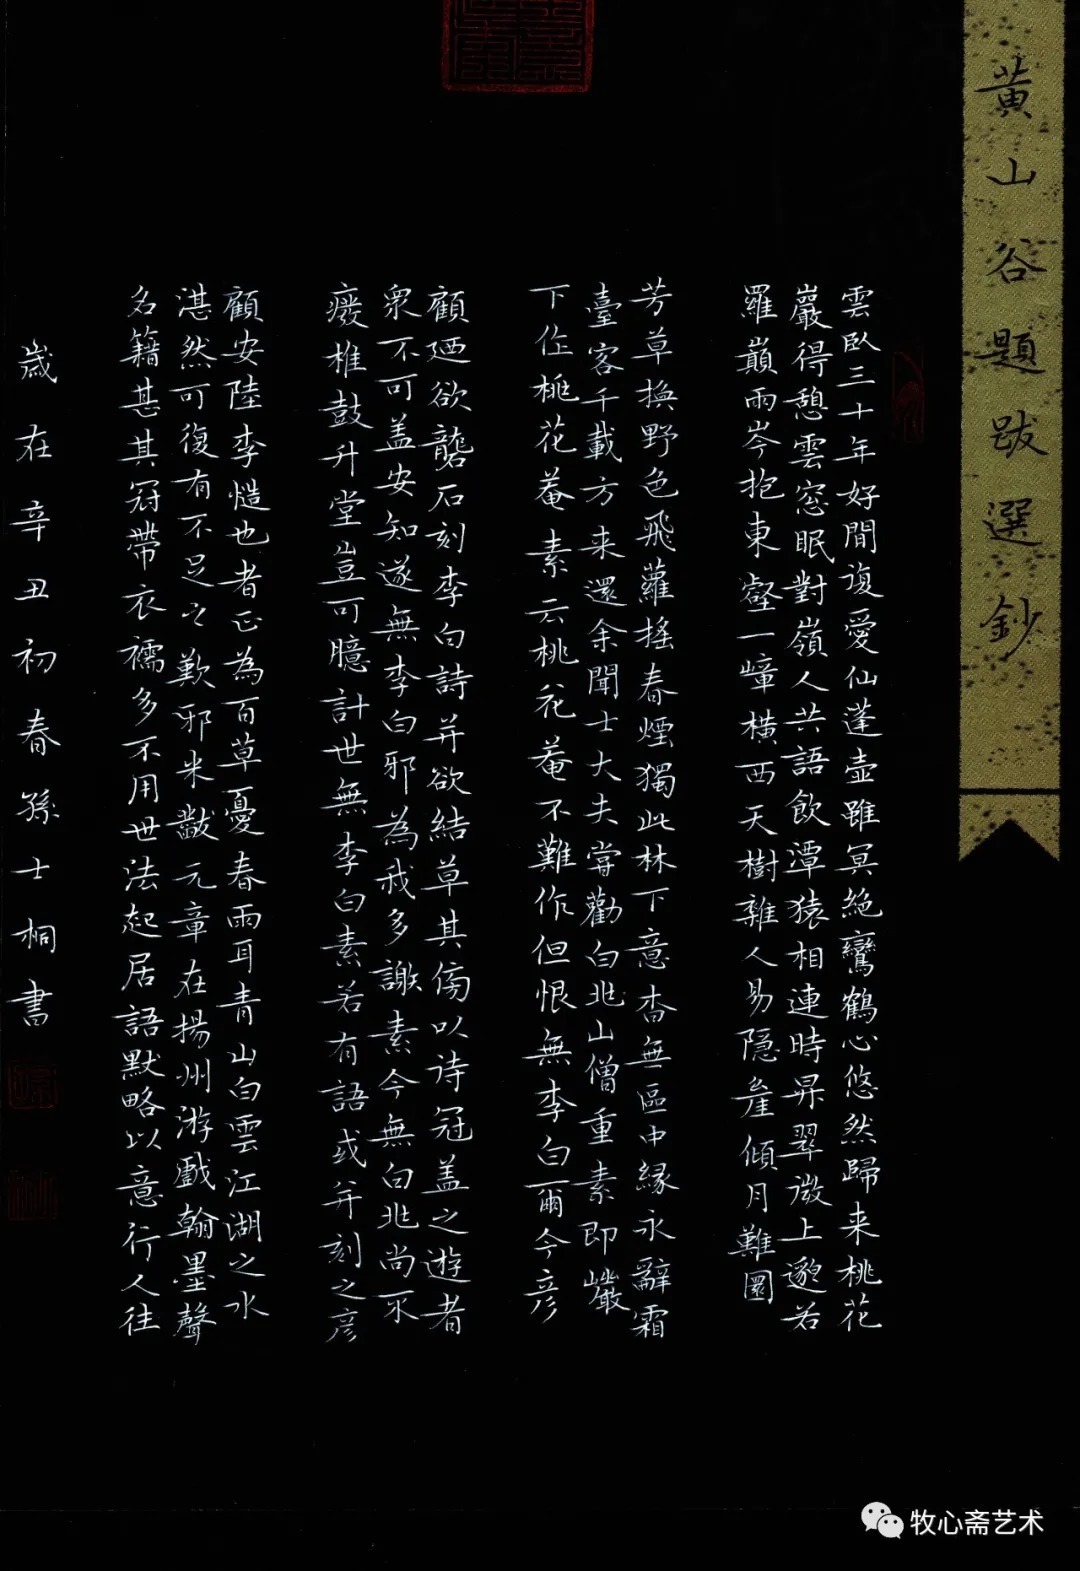 黄山谷題跋選鈔
雲臥三十年好閒復愛仙蓬壺雖冥絶鸞鶴心悠然歸来桃花
巖得憩雲窓眠對嶺人共語飲潭猿相連時昇翠微上邈若
羅巔兩岑抱東壑一嶂横西天樹雜人易隠崖傾月難圓
芳草換野色飛蘿搖春煙獨此林下意杳無區中縁永辭霜
臺客千載方来還余聞士大夫嘗勸白兆山僧重素即巖
下作桃花菴素云桃花菴不難作但恨無李白爾今彦
顧廼欲礱石刻李白詩并欲結草其傍以诗冠盖之遊者
衆不可盖安知遂無李白邪為我多謝素今無白兆尚不
癈椎鼓升堂豈可臆計世無李白素若有語或并刻之彦
顧安陸李慥也者正為百草憂春雨耳青山白雲江湖之水
湛然可復有不足之歎邪米黻元章在揚州游戲翰墨聲
名籍甚其冠帶衣襦多不用世法起居語默略以意行人往
歲在辛丑初春孫士桐書
牧心斋艺术